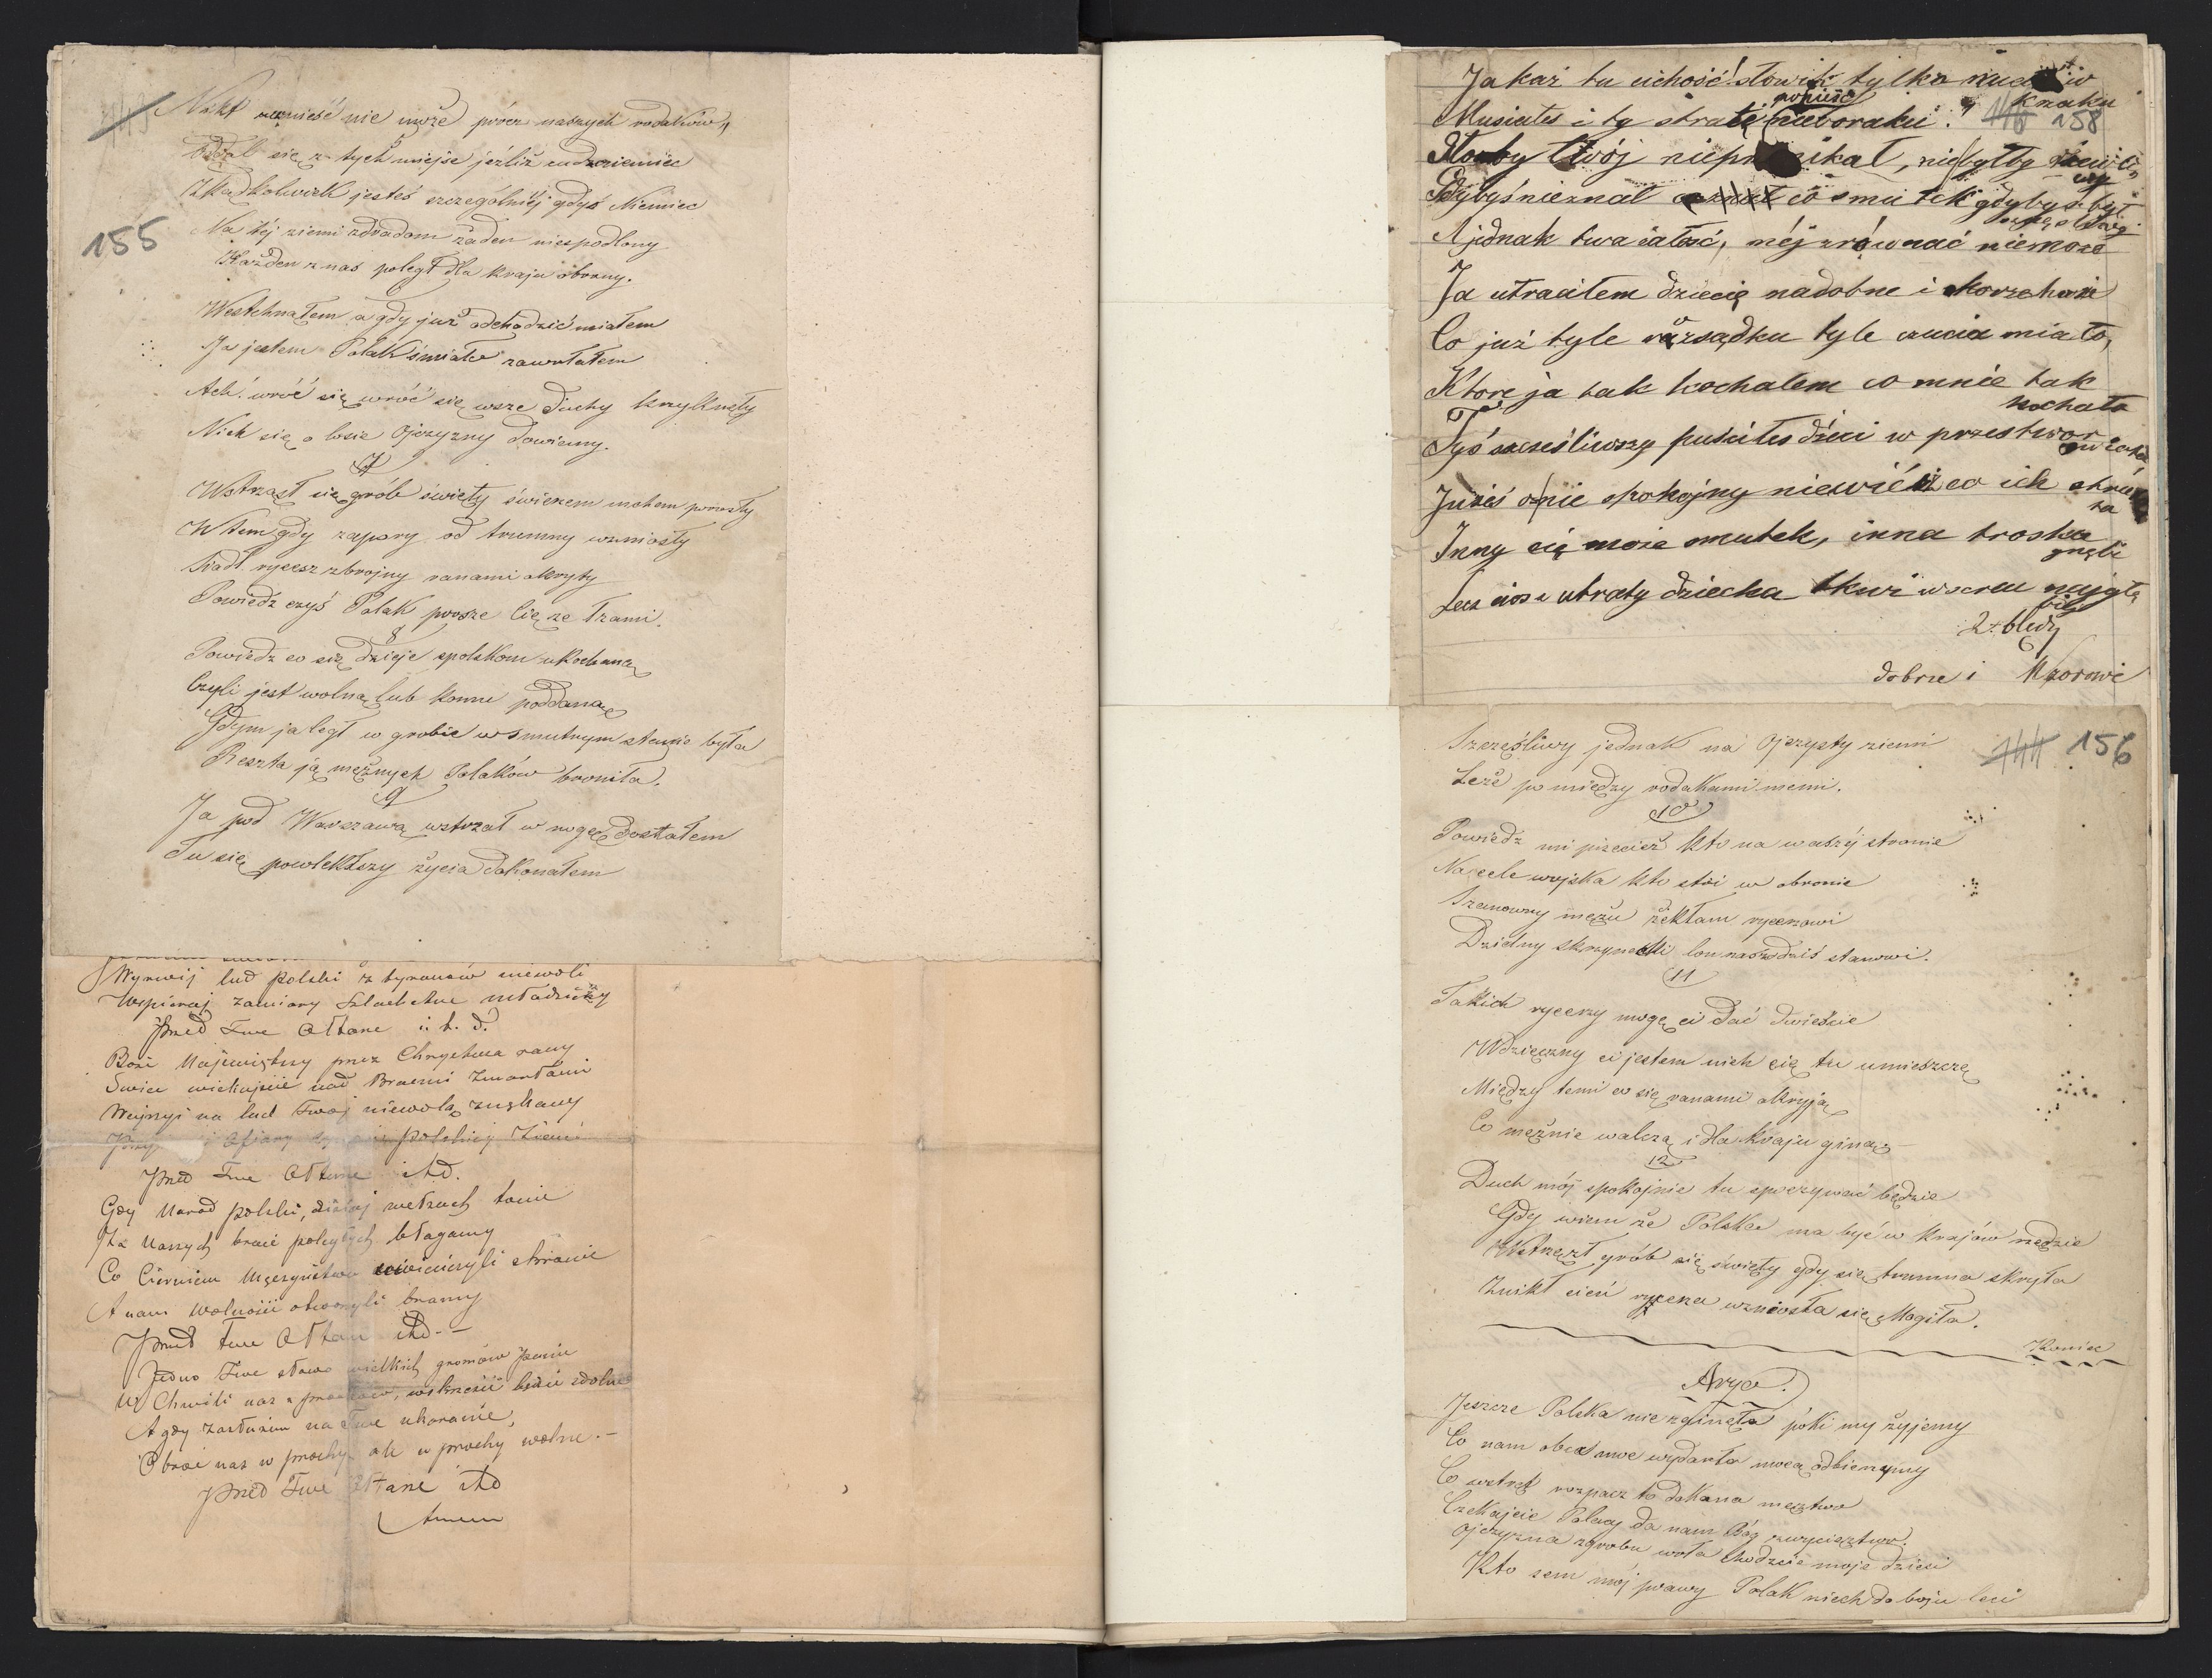 143
Nikt wnieść nie może prócz naszych rodaków,
Oddal się z tych miejsc jeźliż cudzoziemiec
Zkądkolwiek jesteś szczególniéj gdyś Niemiec
155
Na téj ziemi zdradom żaden niespodlony
Każden z nas poległ dla kraju obrony.
Westchnąłem a gdy już odchodzić miałem
Ja jestem Polak śmiało zawołałem
Ach! wróć się wróć się wsze duchy krzyknęły
Niech się o losie Ojczyzny dowiemy.
7
Wstrząsł się grób święty świeżem mchem porosły
Wtem gdy zapory od trumny wzniosły
Siadł rycerz zbrojny ranami okryty
Powiedz czyś Polak proszę Cię ze łzami.
8
Powiedz co się dzieje spolskom ukochaną
Czyli jest wolną lub komu poddaną
Gdym ja legł w grobie w smutnym stanie była
Reszta ją mężnych Polaków broniła.
9
Ja pod Warszawą wstrzał w nogę dostałem
Tu się powlekłszy życia dokonałem
Wyrwij lud polski z tyranów niewoli
Wspieraj zamiary szlachetne młodzieży
Przed Twe Ołtarze i. t. d.
Boże Najświętszy przez Chrystusa rany
Swieć wiekujście nad Braćmi Zmarłemi
Wejrzyj na lud Twoj niewolą znękany
Przyj Ofiary polskiej Ziemi
Przed Twe Ołtarze itd.
Gdy Narod polski, dzisiaj we łzach tonie
Za Naszych braci poległych błagamy
Co Cierniem Męczeństwa uwieńczyli skronie
A nam Wolności otworzyli bramy
Przed twe Ołtarze itd. -
Jedno Twe słowo wielkich gromów Panie
W Chwili nas z prochów, wskrzesić będzie zdolne
A gdy zasłużem na Twe ukaranie,
Obróć nas w prochy ale w prochy wolne. -
Przed Twe Ołtarze itd
Amen
Jakaż tu cichość! słowik tylko nuci w
krzaku
Musiałeś i ty stratę ponieść nieboraku!
146 158
Głosby twój nieprzenikał, niebyłby rzewliwy
Gdybyś nieznał co smutek gdybyś był
szczęśliwy
A jednak twa żałość, méj zrównać niemoże
Ja utraciłem dziecię nadobne i hoże
Co już tyle rozsądku tyle czucia miało,
Które ja tak kochałem co mnie tak
kochało
Tyś szcześliwszy puściłeś dzieci w przestwor
Jużeś o nie spokojny niewiész co ich
Inny cię może smutek, inna troska
gnębi
Lecz cios z utraty dziecka tkwi w sercu najgłę
biéj
2. błędy
dobrze i Wzorowie
144 156
Szczęśliwy jednak na Ojczysty ziemi
Leże pomiędzy rodakami memi.
10
Powiedz mi przecież kto na waszéj stronie
Na czele wojska kto stoi w obronie
Szanowny mężu rzekłam rycerzowi
Dzielny skrzynecki lon nasz dziś stanowi.
11
Takich rycerzy mogę ci dać dwieście
Wdzięczny ci jestem niech się tu umieszczę
Między temi co się ranami okryją
Co mężnie walczą i dla kraju giną -
12
Duch mój spokojnie tu spoczywać będzie
Gdy wiem że Polska ma być w krajów rzędzie
Wstrząsł grób się święty gdy się trumna skryła
Znikł cień rycerza wzniosła się Mogiła.
Koniec
Arya.
Jeszcze Polska nie zginęła póki my żyjemy
Co nam obca moc wydarła mocą odbierzemy
Co wstręt rozpacz to dokona męztwo
Czekajcie Polacy da nam Bóg zwycięztwo.
Ojczyzna zgrobu woła chodźcie moje dzieci
Kto sem mój prawy Polak niech do boju leci